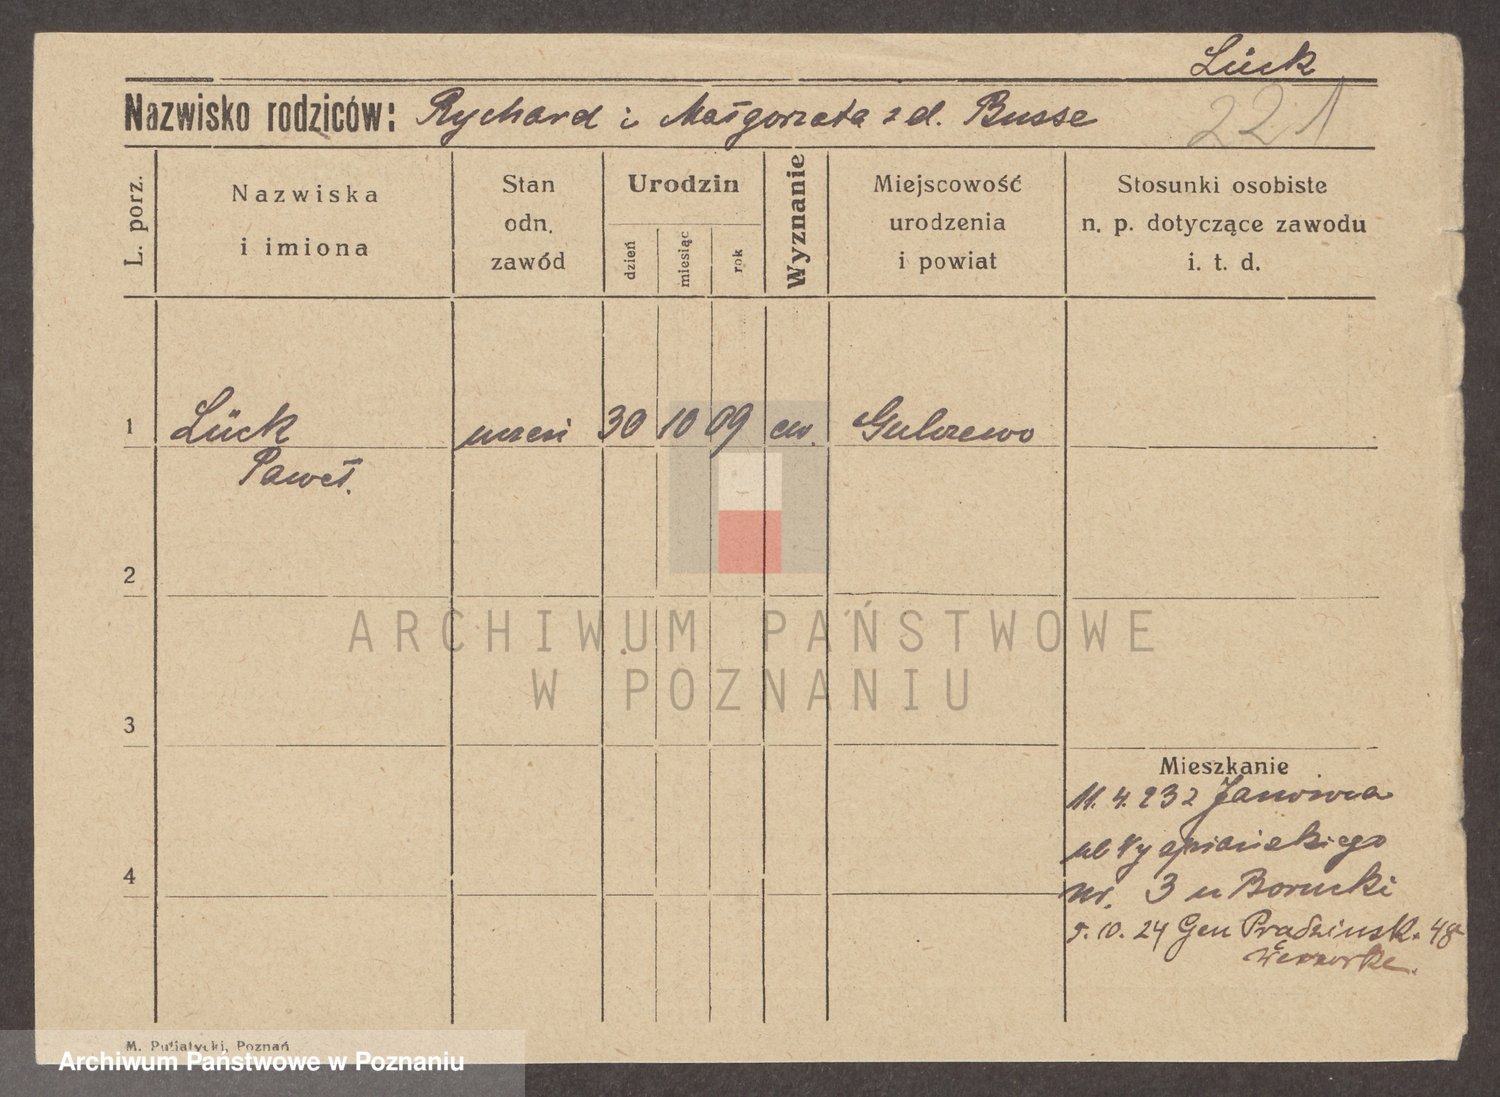 Lück
Nazwisko rodziców: Rychard i Małgorzata zd. Busse
221
L. porz.
Nazwiska
i imiona
Stan
odn.
zawód
Urodzin
dzień
miesiąc
rok
Wyznanie
Miejscowość
urodzenia
i powiat
Stosunki osobiste
n. p. dotyczące zawodu
i. t. d.
1 Lück uczeń 30 10 09 ew. Gulczewo
Paweł.
2
ARCHIWUM PAŃSTWOWE
W POZNANIU
3
Mieszkanie
11. 4. 232
ul Wyspiańskiego
4
nr. 3 u Borucki
5. 10. 24 Gen Prądzinsk. 48
M. Putiatycki, Poznań
Archiwum Państwowe w Poznaniu